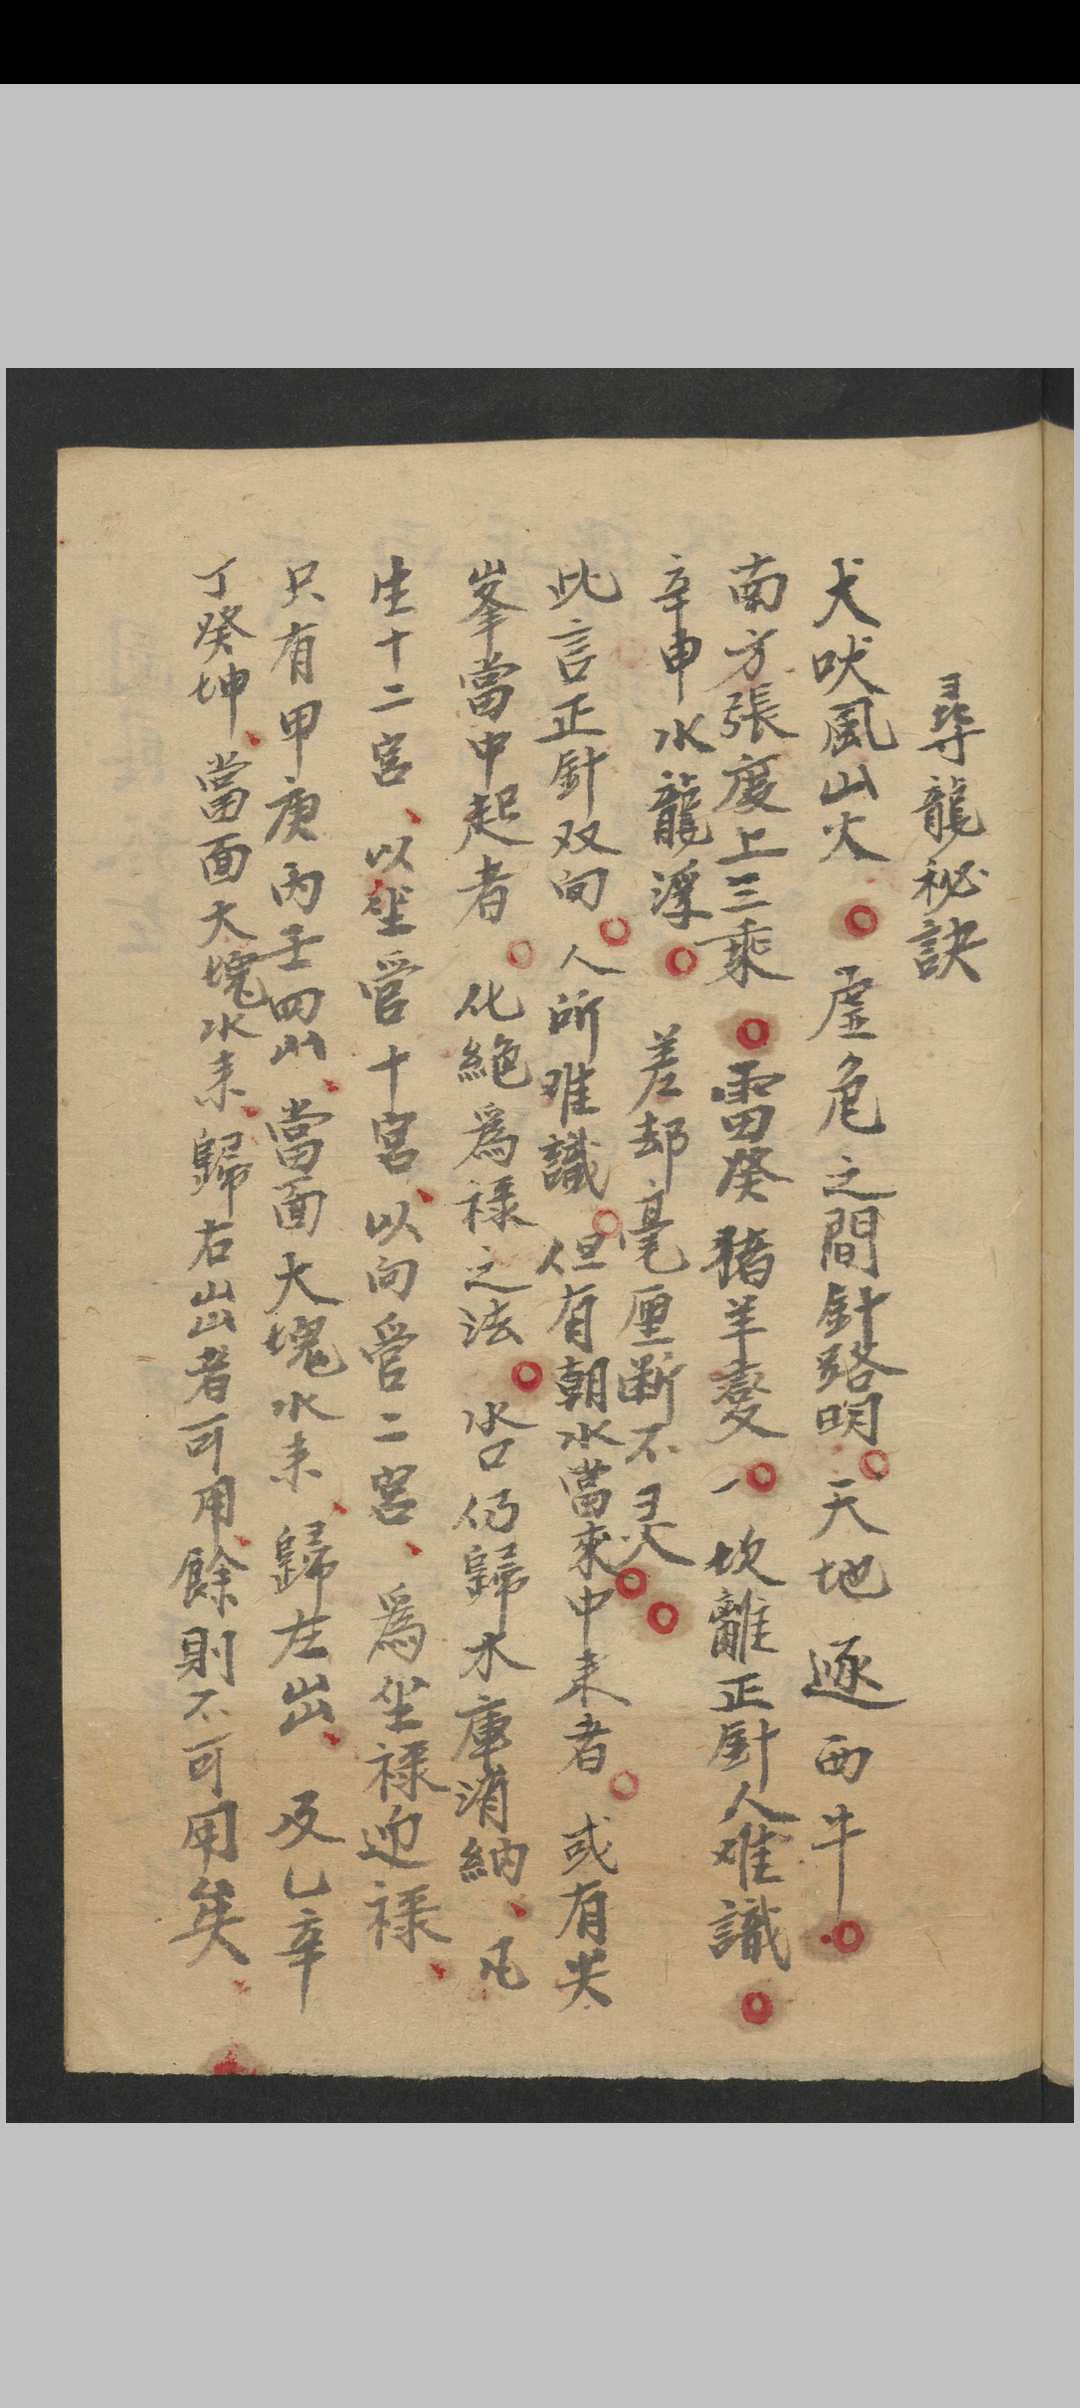 尋龍秘訣
犬吠風山火 虛危之間針路明 天地逐西牛
南方張度上三乘 雷癸猪羊變 坎離正針人难識
辛申水龍浮 差却毫厘断不灵
此言正針双向 人所难識 但有朝水當來中来者 或有尖
峯當中起者 化絶爲禄之法 水口仍歸木庫消納 凡
生十二宮 以坐管十宮 以向管二宮 爲坐禄迎禄
只有甲庚丙壬四山 當面大塊水来 歸左出 及乙辛
丁癸坤 當面大塊水来 歸右出者可用 餘則不可用矣